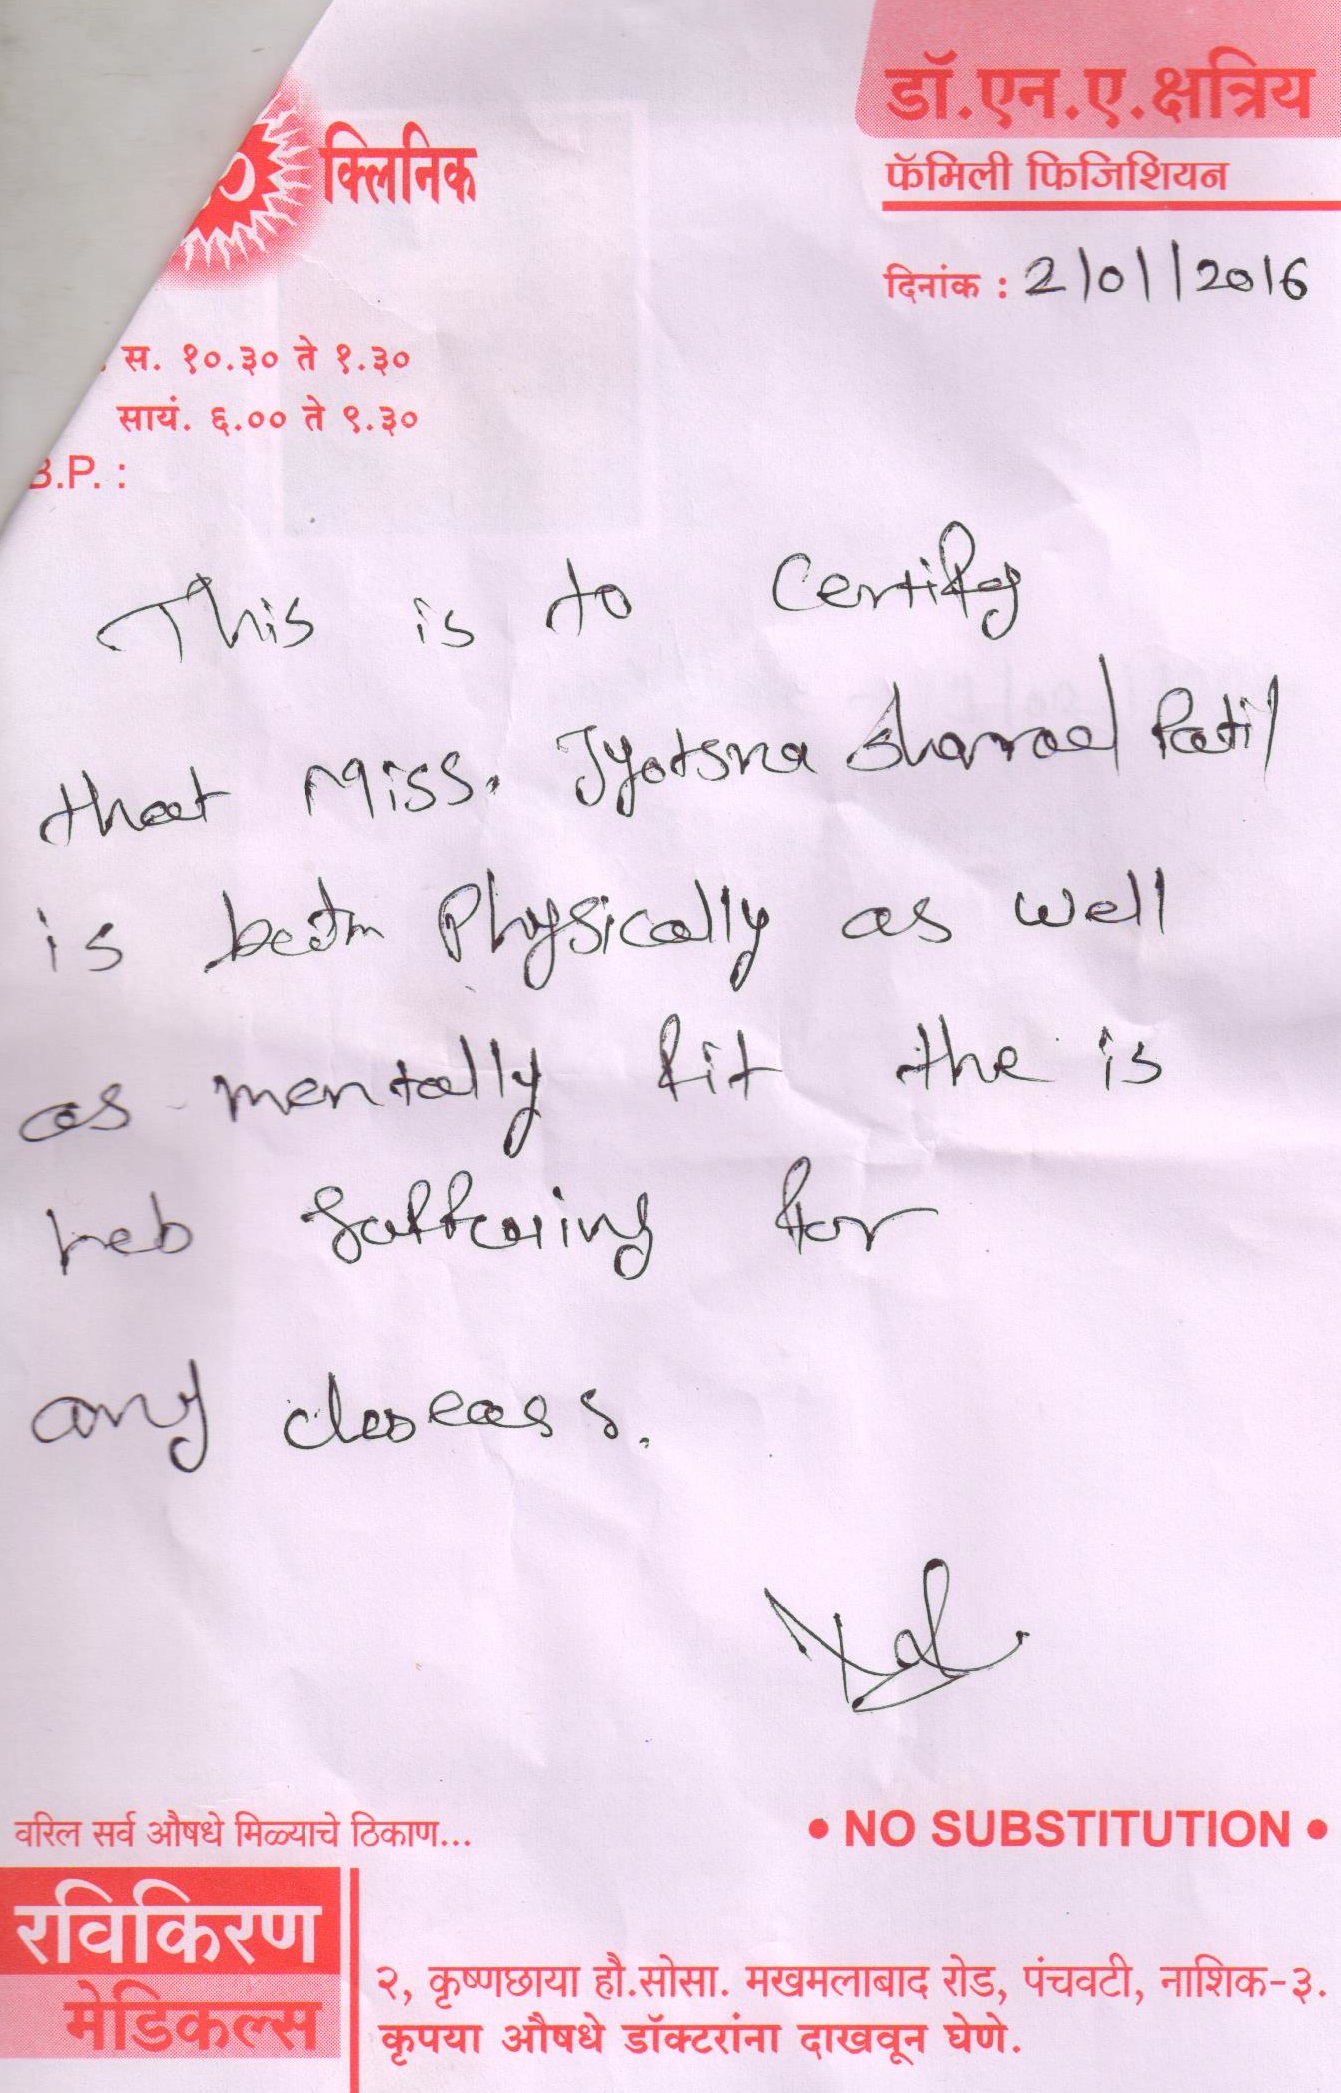 डॉ.एन.ए.क्षत्रिय
क्लिनिक
फॅमिली फिजिशियन
दिनांक : 2/01/2016
स. १०.३० ते १.३०
सायं. ६.०० ते ९.३०
B.P. :
This is to Certify
that Miss. Jyotsna Sharad Patil
is both Physically as well
as mentally fit the is
suffering for
any
वरिल सर्व औषधे मिळ्याचे ठिकाण...
• NO SUBSTITUTION •
रविकिरण
मेडिकल्स
२, कृष्णछाया हौ.सोसा. मखमलाबाद रोड, पंचवटी, नाशिक-३.
कृपया औषधे डॉक्टरांना दाखवून घेणे.